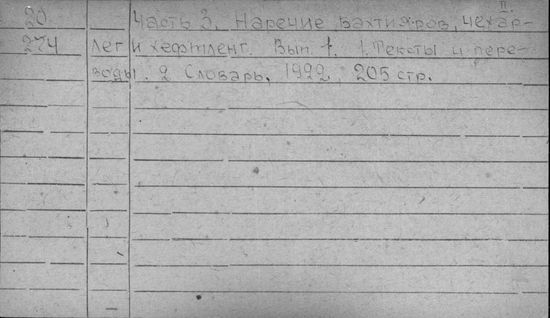 II.
20. Часть 3. Наречие бахтиаров, чехар-
274 лег и хефтленг. Вып. 1. 1. Тексты и пере-
воды. 2 Словарь, 1922, 205 стр.